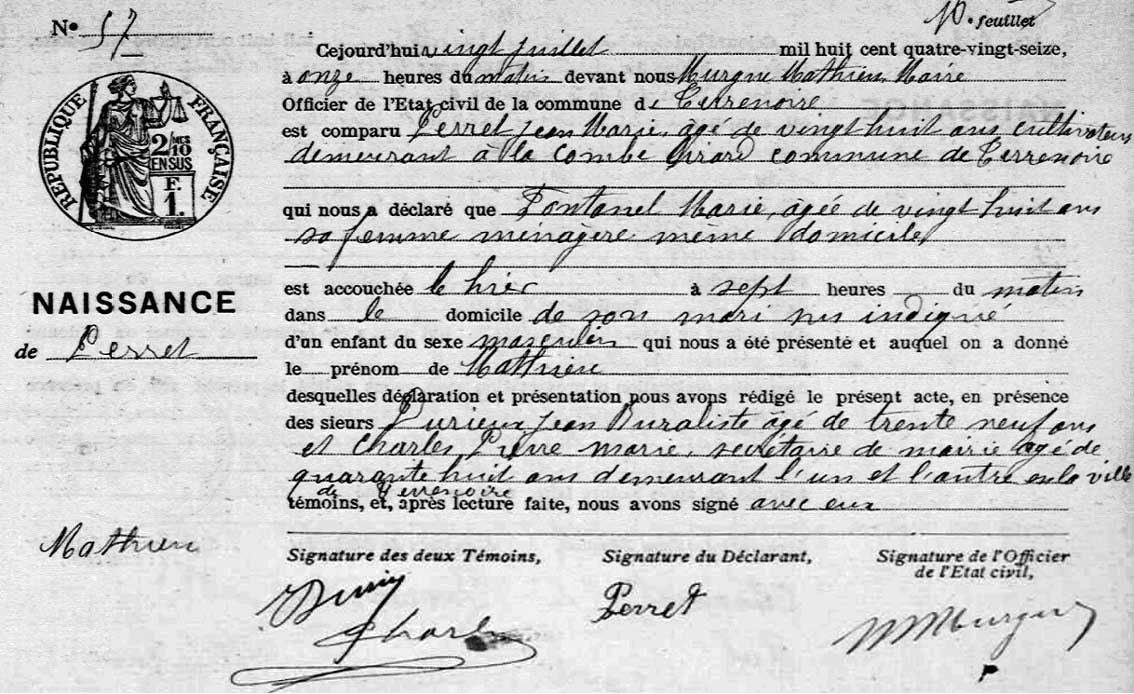 Nº 57
10e feuillet
Cejourd'hui vingt juillet mil huit cent quatre-vingt-seize,
à onze heures du matin devant nous Murgue Mathieu Maire
Officier de l'Etat civil de la commune de Terrenoire
est comparu Perret Jean Marie, âgé de vingt huit ans cultivateur
demeurant à la Combe Girard commune de Terrenoire
qui nous a déclaré que Fontanel Marie, âgée de vingt huit ans
sa femme ménagère même domicile,
est accouchée le hier à sept heures du matin
dans le domicile de son mari sus indiqué
d'un enfant du sexe masculin qui nous a été présenté et auquel on a donné
le prénom de Mathieu
desquelles déclaration et présentation nous avons rédigé le présent acte, en présence
des sieurs Durieux Jean Buraliste âgé de trente neuf ans
et Charles Pierre Marie, secrétaire de mairie âgé de
quarante huit ans demeurant l'un et l'autre en la ville
de Terrenoire
témoins, et, après lecture faite, nous avons signé avec eux
RÉPUBLIQUE FRANÇAISE
2/10 MES
EN SUS
F.
1.
NAISSANCE
de Perret
Mathieu
Signature des deux Témoins,
Signature du Déclarant,
Signature de l'Officier
de l'Etat civil,
Perret
Murgue